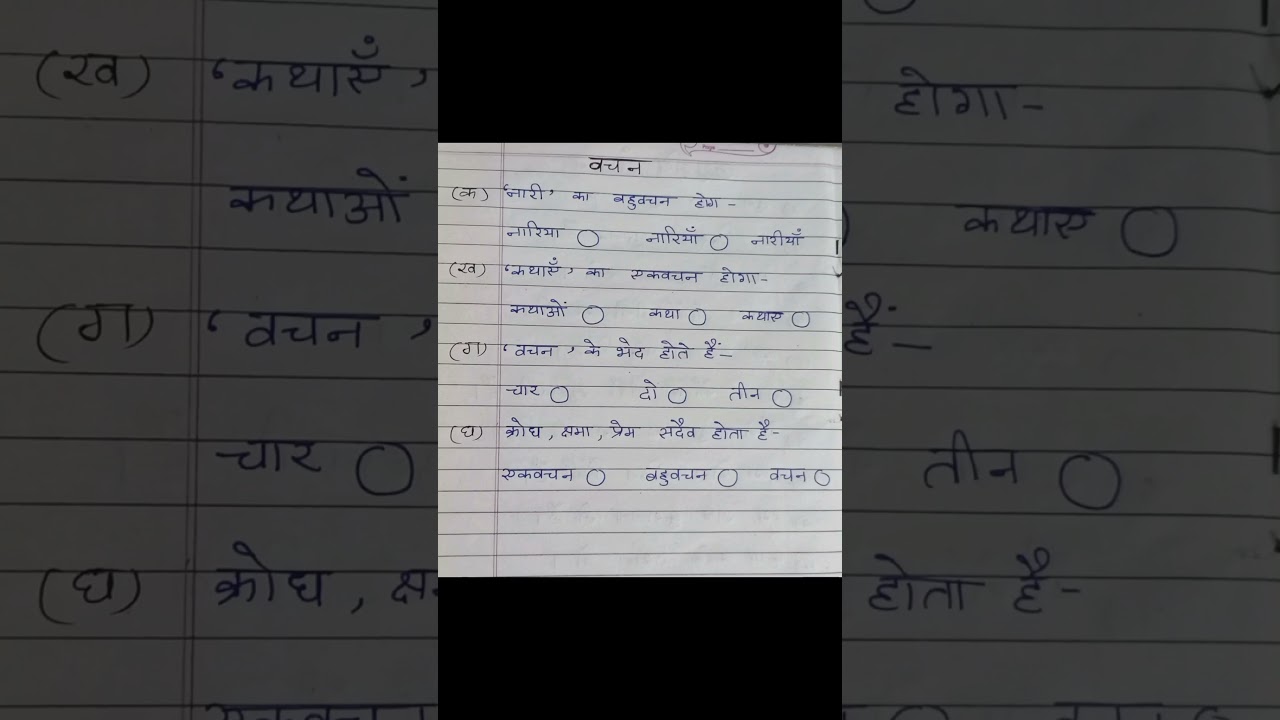 वचन
(क) 'नारी' का बहुवचन होग -
नारिया ○ नारियाँ ○ नारीयाँ
(ख) 'कथाएँ' का एकवचन होगा-
कथाओं ○ कथा ○ कथाए ○
(ग) 'वचन' के भेद होते हैं-
चार ○ दो ○ तीन ○
(घ) क्रोध, क्षमा, प्रेम सदैव होता है-
एकवचन ○ बहुवचन ○ वचन ○